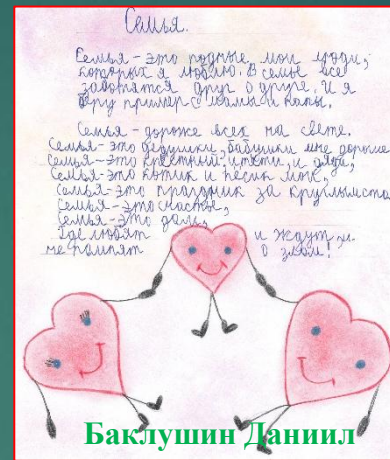 Семья.
Семья - это родные мои люди,
которых я люблю. В семье все
заботятся друг о друге. И я
беру пример с мамы и папы.
Семья - дороже всех на свете.
Семья - это дедушки, бабушки мне дороже
Семья - это и тёти и дяди,
Семья - это котик и пёсик мой,
Семья - это праздник за круглым стол
Семья - это счастье,
Семья - это дом,
Где любят и ждут, и
не помнят о злом!
Баклушин Даниил